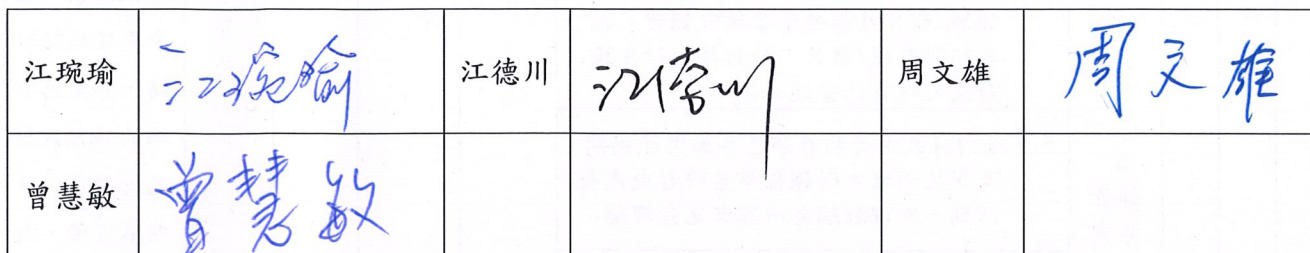 江琬瑜 江琬瑜 江德川 江德川 周文雄 周文雄
曾慧敏 曾慧敏